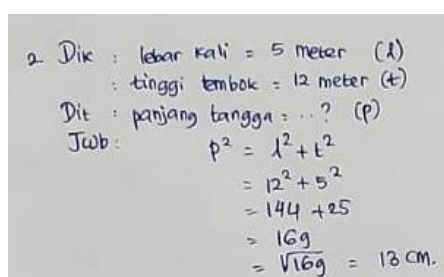 2 Dik : lebar kali = 5 meter (l)
: tinggi tembok = 12 meter (t)
Dit : panjang tangga = ..? (p)
Jwb : p² = l² + t²
= 12² + 5²
= 144 + 25
= 169
= √169 = 13 cm.